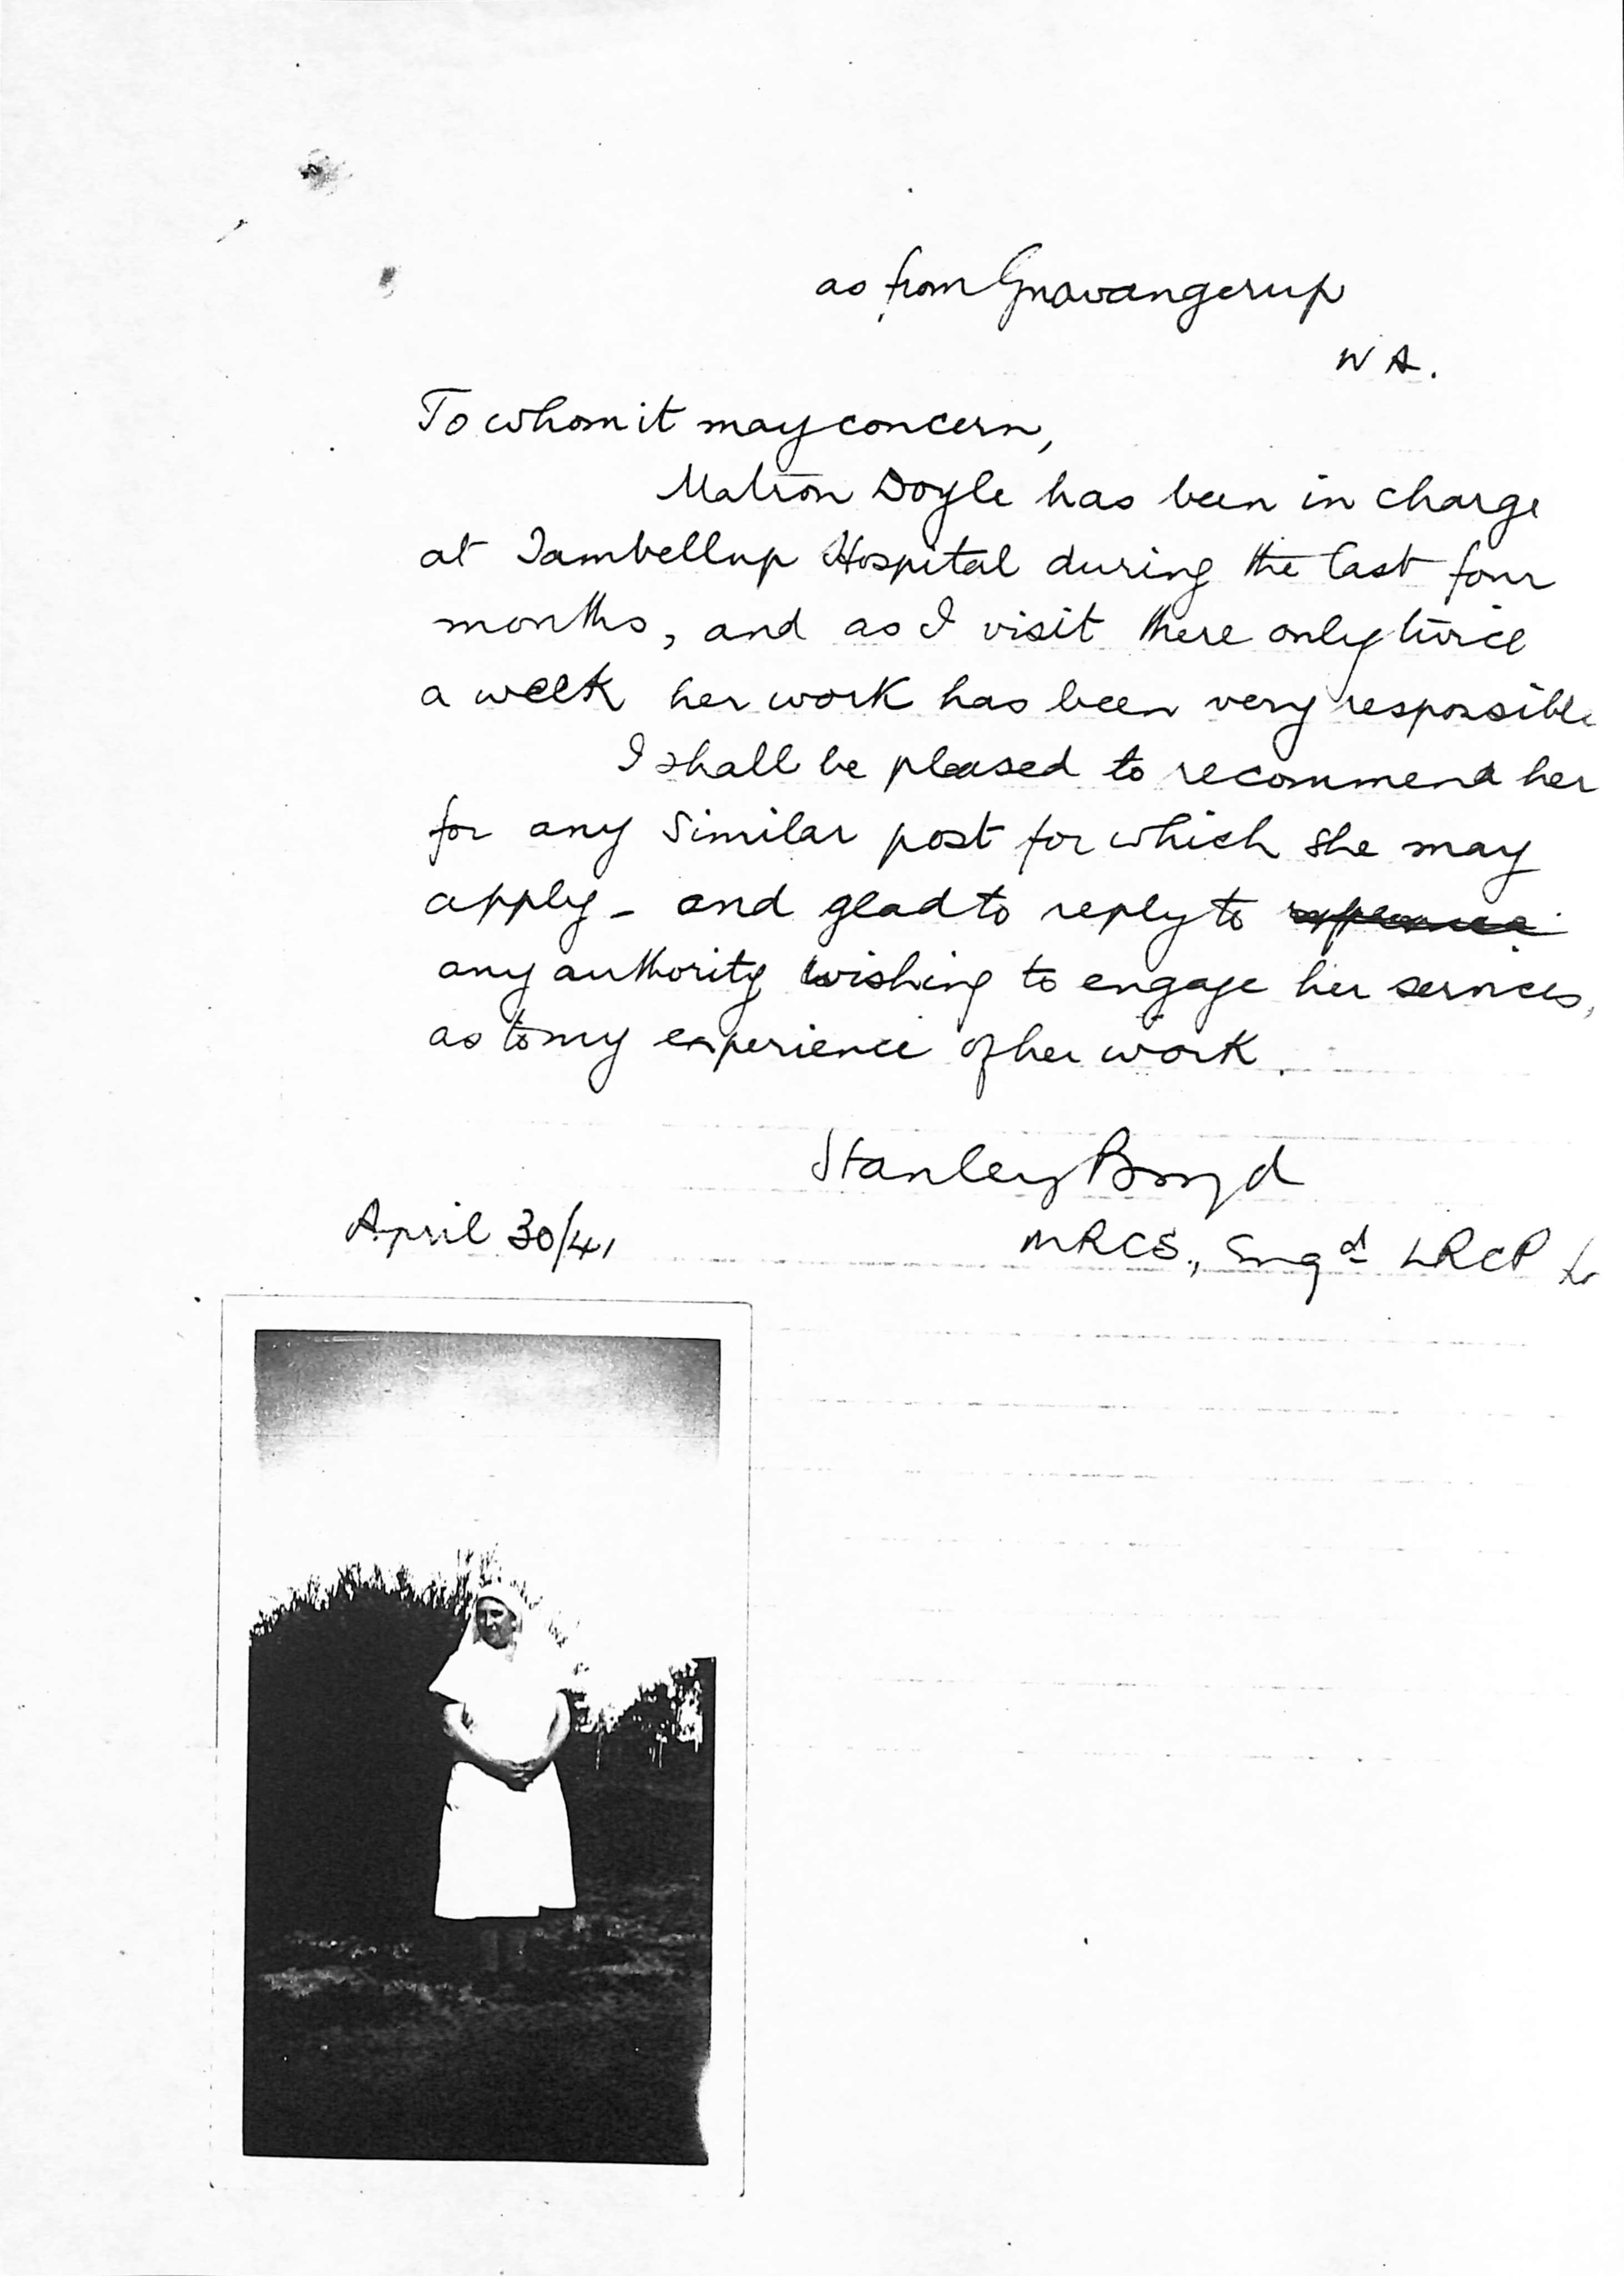 as from Gnowangerup
W A.
To whom it may concern,
Matron Doyle has been in charge
at Tambellup Hospital during the last four
months, and as I visit there only twice
a week her work has been very responsible
I shall be pleased to recommend her
for any similar post for which she may
apply - and glad to reply to
any authority wishing to engage her services,
as to my experience of her work.
Stanley Boyd
April 30/41
MRCS., Engd LRCP